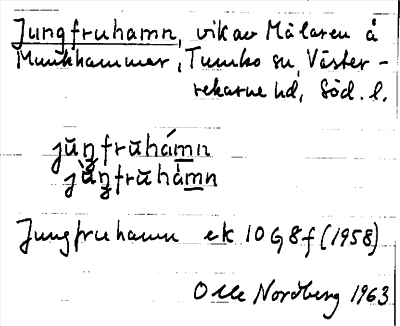 Jungfruhamn, vik av Mälaren å
Munkhammar, Tumbo sn, Väster-
rekarne hd, Söd. l.
jŭŋfrŭhámn
jŭ̀ŋfrŭhàmn
Jungfruhamn ek 10 G 8 f (1958)
Olle Nordberg 1963